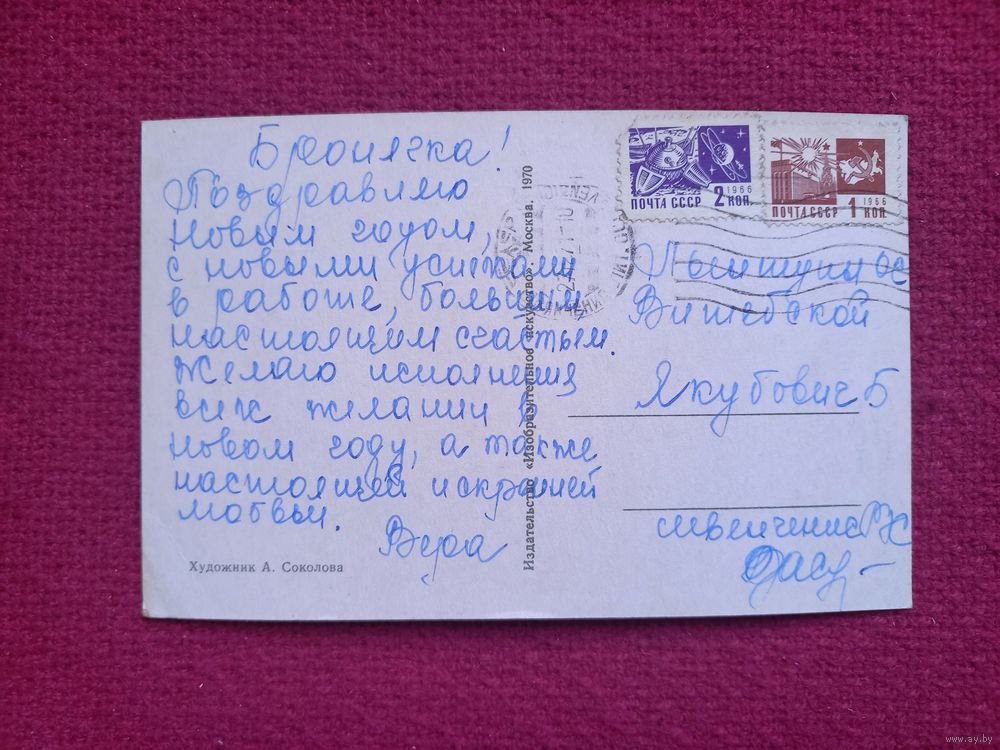 Бронячка!
Поздравляю
новым годом,
с новыми успехами
в работе, большим
настоящим счастьем.
Желаю исполнения
всех желаний в
новом году, а также
настоящей искраней
любви.
Вера
Художник А. Соколова
Издательство «Изобразительное искусство». Москва. 1970
1966
ПОЧТА СССР 2 КОП.
1966
ПОЧТА СССР 1 КОП.
Витебской
Якубович Б
www.ay.by